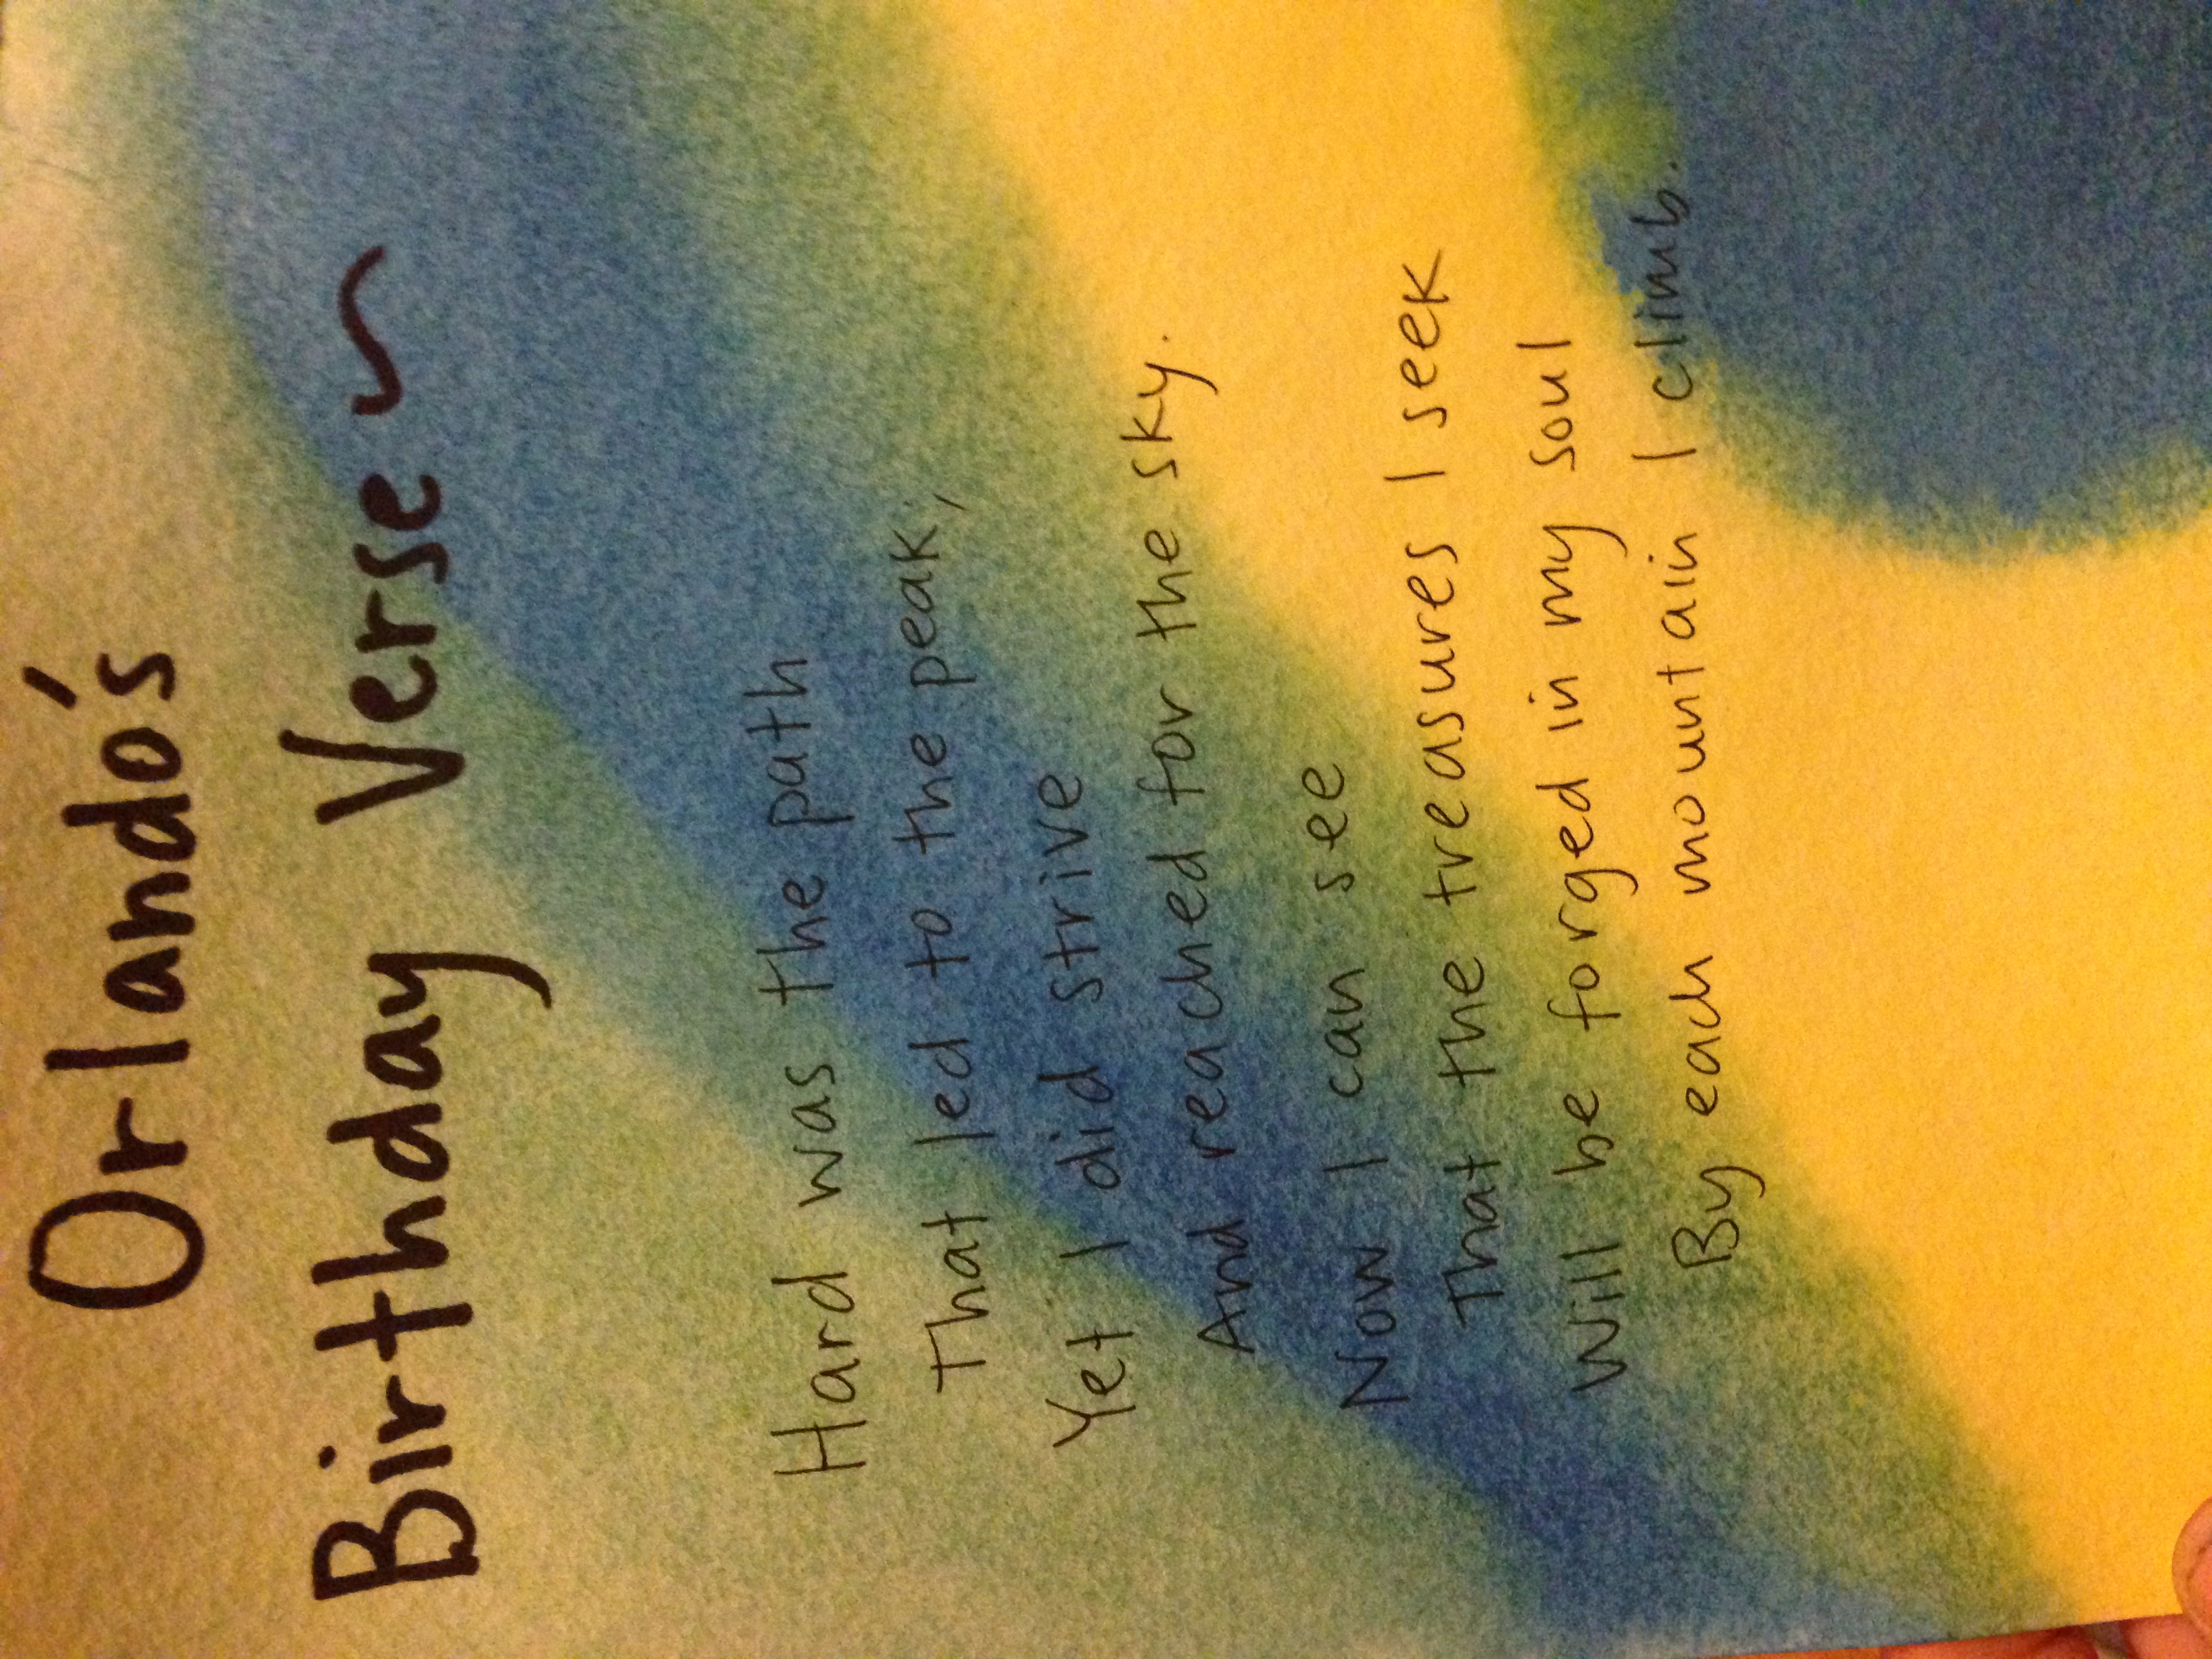 Orlando's
Birthday Verse ~
Hard was the path
That led to the peak,
Yet I did strive
And reached for the sky.
Now I can see
That the treasures I seek
Will be forged in my soul
By each mountain I climb.